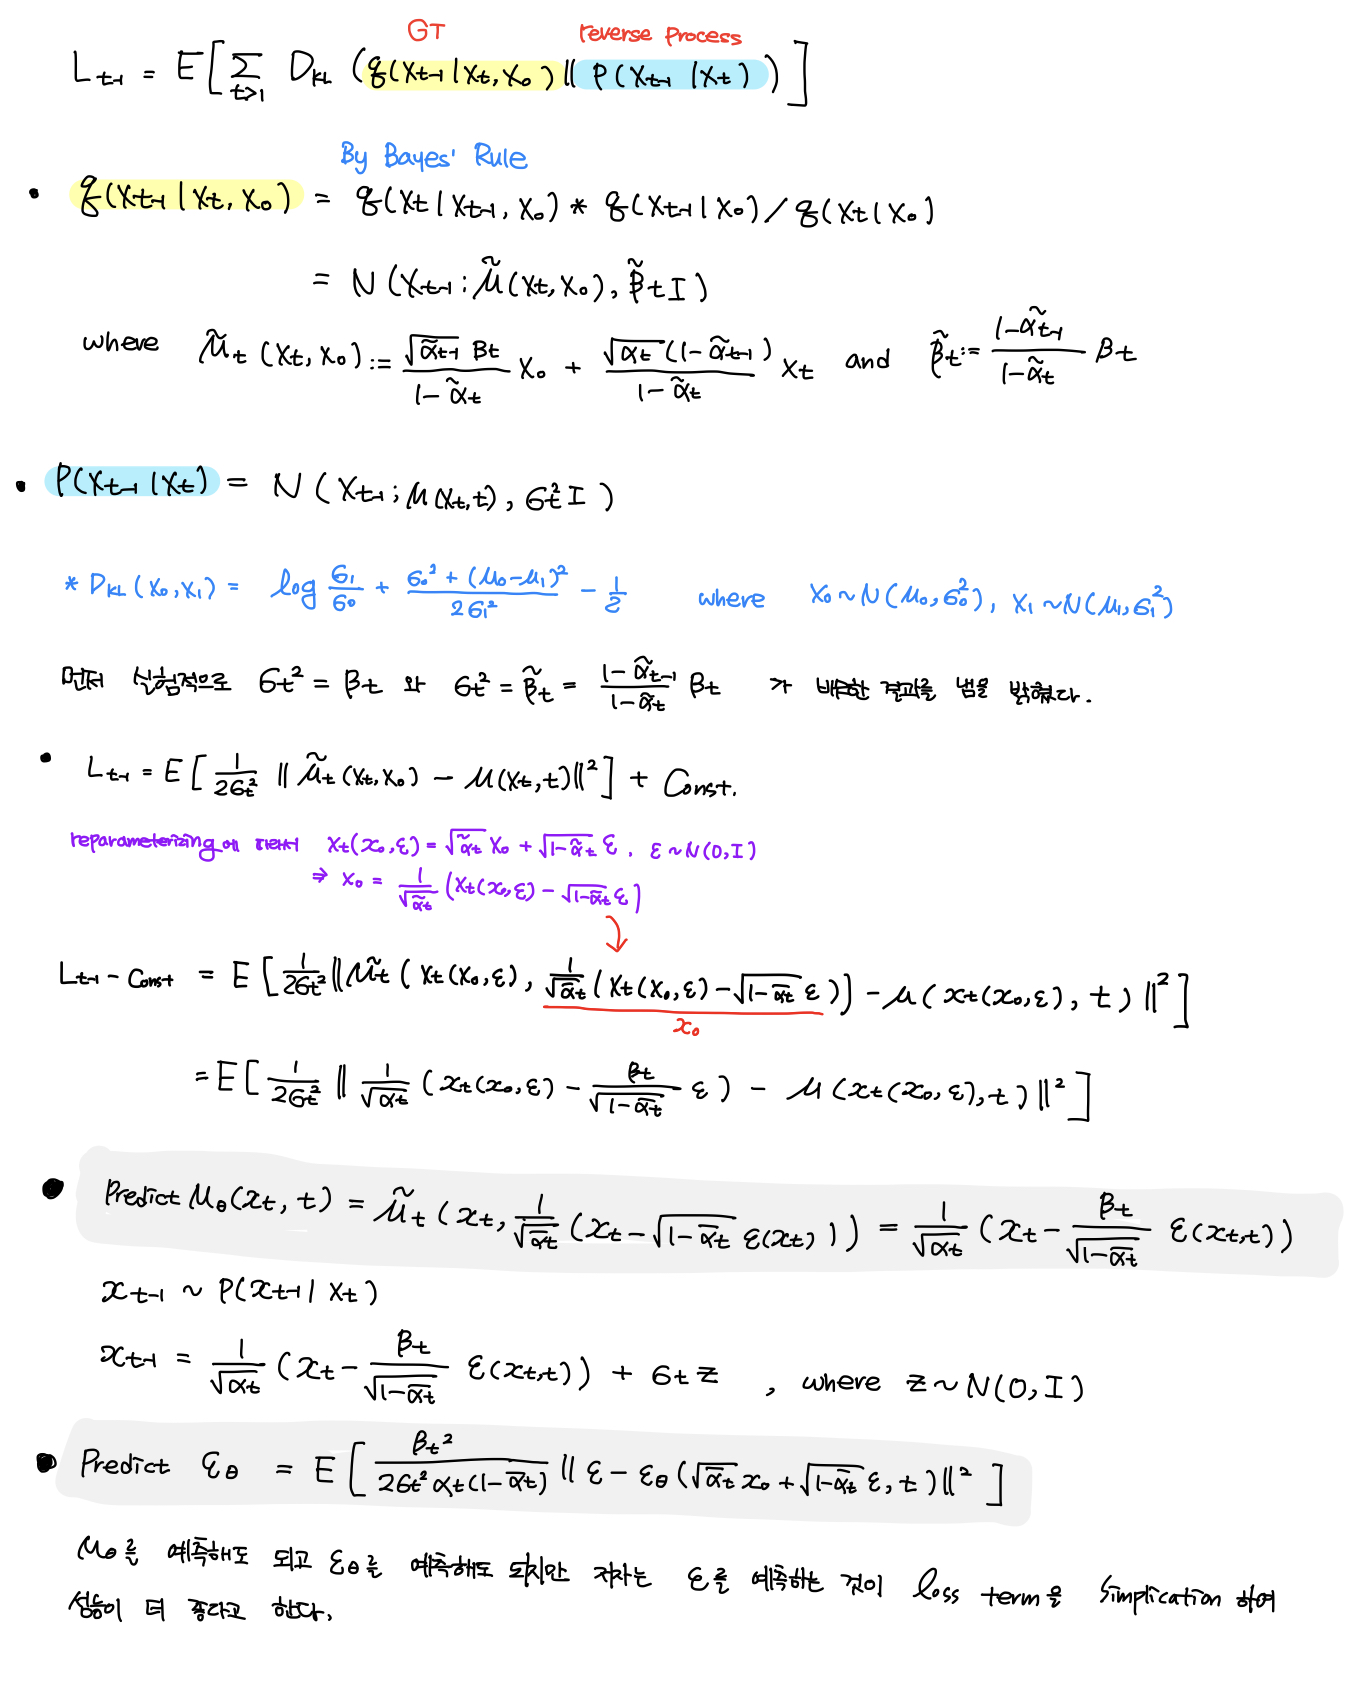 GT reverse process
L_{t-1} = E[∑_{t>1} D_{KL}(q(x_{t-1}|x_t, x_0) || P(x_{t-1}|x_t))]
By Bayes' Rule
• q(x_{t-1}|x_t, x_0) = q(x_t|x_{t-1}, x_0) * q(x_{t-1}|x_0) / q(x_t|x_0)
= N(x_{t-1}; μ̃(x_t, x_0), β̃_t I)
where μ̃_t(x_t, x_0) := \frac{\sqrt{α̃_{t-1}} β_t}{1-α̃_t} x_0 + \frac{\sqrt{α_t}(1-α̃_{t-1})}{1-α̃_t} x_t and β̃_t := \frac{1-α̃_{t-1}}{1-α̃_t} β_t
• P(x_{t-1}|x_t) = N(x_{t-1}; μ(x_t,t), σ_t^2 I)
* D_{KL}(x_0, x_1) = log \frac{σ_1}{σ_0} + \frac{σ_0^2 + (μ_0-μ_1)^2}{2σ_1^2} - \frac{1}{2} where x_0 ~ N(μ_0, σ_0^2), x_1 ~ N(μ_1, σ_1^2)
먼저 실험적으로 σ_t^2 = β_t 와 σ_t^2 = β̃_t = \frac{1-α̃_{t-1}}{1-α̃_t} β_t 가 비슷한 결과를 냄을 밝혔다.
• L_{t-1} = E[\frac{1}{2σ_t^2} || μ̃_t(x_t,x_0) - μ(x_t,t)||^2] + Const.
reparameterizing에 따라서 x_t(x_0,ε) = \sqrt{α̃_t} x_0 + \sqrt{1-α̃_t} ε, ε ~ N(0,I)
⇒ x_0 = \frac{1}{\sqrt{α̃_t}} (x_t(x_0,ε) - \sqrt{1-α̃_t} ε)
L_{t-1} - Const = E[\frac{1}{2σ_t^2} || μ̃_t(x_t(x_0,ε), \frac{1}{\sqrt{ᾱ_t}}(x_t(x_0,ε) - \sqrt{1-ᾱ_t} ε)) - μ(x_t(x_0,ε), t)||^2]
x_0
= E[\frac{1}{2σ_t^2} || \frac{1}{\sqrt{α_t}} (x_t(x_0,ε) - \frac{β_t}{\sqrt{1-ᾱ_t}} ε) - μ(x_t(x_0,ε),t)||^2]
• Predict μ_θ(x_t, t) = μ̃_t(x_t, \frac{1}{\sqrt{ᾱ_t}}(x_t - \sqrt{1-ᾱ_t} ε(x_t))) = \frac{1}{\sqrt{α_t}} (x_t - \frac{β_t}{\sqrt{1-ᾱ_t}} ε(x_t,t))
x_{t-1} ~ P(x_{t-1}|x_t)
x_{t-1} = \frac{1}{\sqrt{α_t}} (x_t - \frac{β_t}{\sqrt{1-ᾱ_t}} ε(x_t,t)) + σ_t z , where z ~ N(0,I)
• Predict ε_θ = E[\frac{β_t^2}{2σ_t^2 α_t(1-ᾱ_t)} || ε - ε_θ(\sqrt{ᾱ_t} x_0 + \sqrt{1-ᾱ_t} ε, t)||^2]
μ_θ를 예측해도 되고 ε_θ를 예측해도 되지만 저자는 ε를 예측하는 것이 loss term을 Simplication 하여
성능이 더 좋다고 한다.